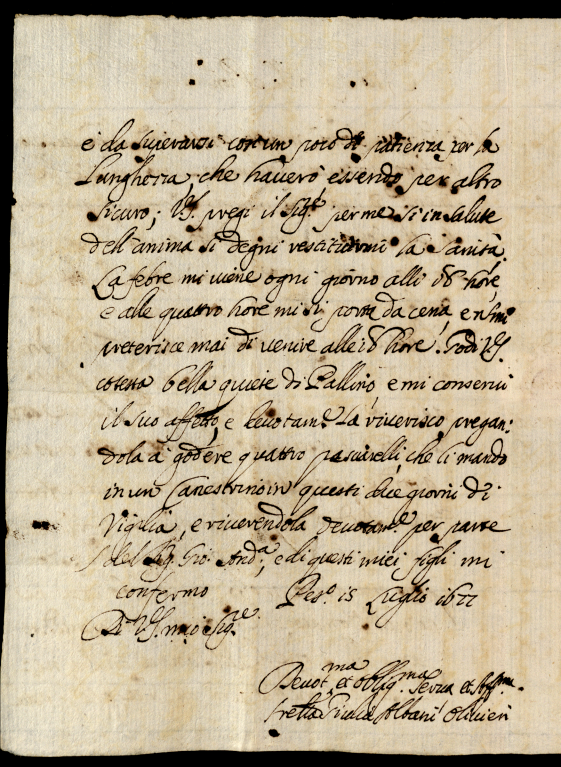 e da superarsi con un poco di patienza per la
Lunghezza, che haverò, essendo per altro
sicuro; V.S. preghi il Sig.re per me se in salute
dell'anima si degni restituirmi la sanità.
La febre mi viene ogni giorno alli 18 hore,
e alle quattro hore mi si porta da cena, e non
preterisce mai di venire alle 18 hore. Godi V.S.
cotesta bella quiete di Pallino, e mi conservi
il suo affetto, e devotam.e la riverisco, pregan:
dola a godere quattro pesciarelli, che li mando
in un Canestrino in questi due giorni di
Vigilia, e riverendola devotam.e per parte
del Sig. Gio. And.a, e di questi miei figli mi
confermo Pes.o 15 Luglio 1677
Di V.S. mio Sig.re
Devot.ma et Obblig.ma Serva et Aff.ma
Sorella Giulia Albani Olivieri